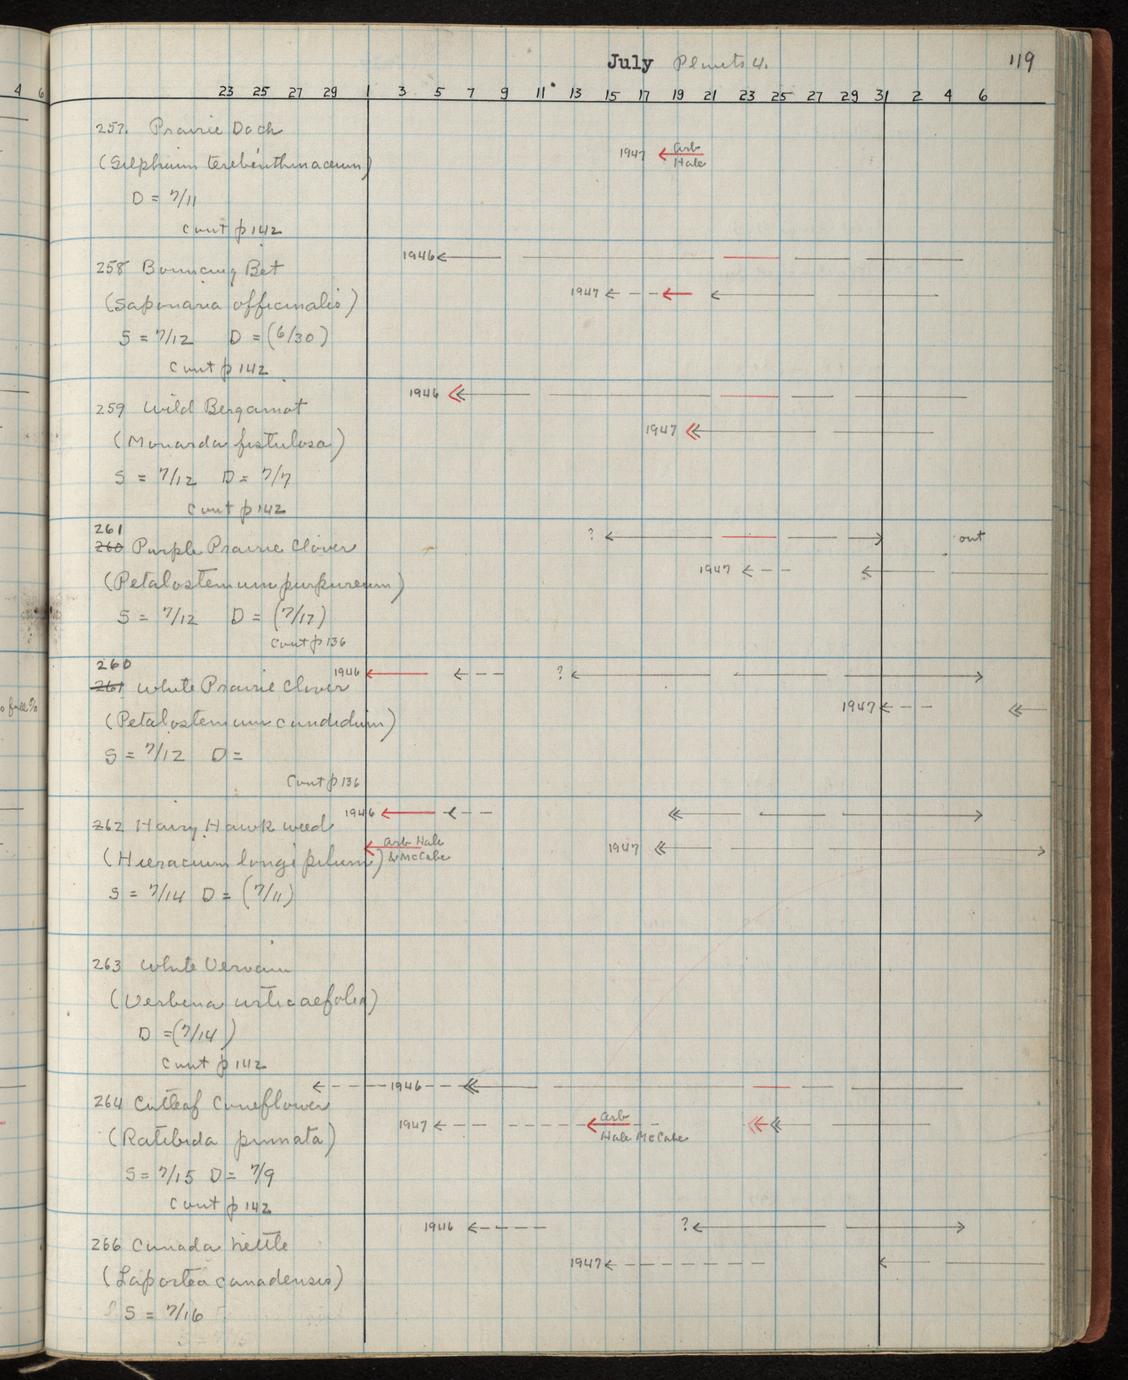 4 6
July Plants 4. 119
23 25 27 29 1 3 5 7 9 11 13 15 17 19 21 23 25 27 29 31 2 4 6
257. Prairie Dock
1947 Arb
Hale
(Silphium terebinthinaceum)
D = 7/11
Cont p 142
1946
258 Bouncing Bet
1947
(Saponaria officinalis)
S = 7/12 D = (6/30)
Cont p 142
1946
259 Wild Bergamot
1947
(Monarda fistulosa)
S = 7/12 D = 7/7
Cont p 142
261
260 Purple Prairie Clover ? out
1947
(Petalostemum purpureum)
S = 7/12 D = (7/17)
Cont p 136
260
1946 ?
261 White Prairie Clover
1947
(Petalostemum candidum)
S = 7/12 D =
Cont p 136
1946
262 Hairy Hawkweed
Arb Hale
& McCabe
1947
(Hieracium longipilum)
S = 7/14 D = (7/11)
263 White Vervain
(Verbena urticaefolia)
D = (7/14)
Cont p 142
1946
264 Cutleaf Coneflower
1947 Arb
Hale McCabe
(Ratibida pinnata)
S = 7/15 D = 7/9
Cont p 142
1946 ?
266 Canada Nettle
1947
(Laportea canadensis)
S = 7/16